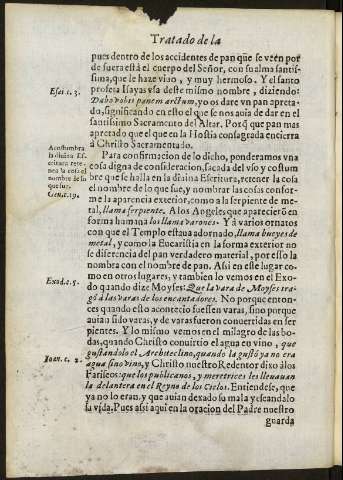 Tratado de la
pues dentro de los accidentes de pan que se veen por
de fuera está el cuerpo del Señor, con su alma santis-
sima, que le haze vino, y muy hermoso. Y el santo
Esai c. 3.
profeta Isayas vsa deste mismo nombre, diziendo:
Dabo vobis panem arctum, yo os daré vn pan apreta-
do, significando en ello el que se nos auia de dar en el
santissimo Sacramento del Altar. Porq̃ que pan mas
apretado que el que en la Hostia consagrada encierra
à Christo Sacramentado.
Acostumbra
la diuina Es-
critura rete-
ner a la cosa el
nombre de lo
que fue.
Gen. c. 19.
Para confirmacion de lo dicho, ponderamos vna
cosa digna de consideracion, sacada del vso y costum
bre que se halla en la diuina Escritura, retener la cosa
el nombre de lo que fue, y nombrar las cosas confor-
me la aparencia exterior, como a la serpiente de me-
tal, llama serpiente. A los Angeles que aparecierõ en
forma humana los llama varones. Y à varios ornatos
con que el Templo estaua adornado, llama bueyes de
metal, y como la Eucaristia en la forma exterior no
se diferencia del pan verdadero material, por esso la
nombra con el nombre de pan. Assi en este lugar co-
mo en otros lugares, y tambien lo vemos en el Exo-
Exod. c. 5.
do quando dize Moyses: Que la vara de Moyses tra-
gó à las varas de los encantadores. No porque enton-
ces quando esto acontecio fuessen varas, sino porque
auian sido varas, y de varas fueron conuertidas en ser
pientes. Y lo mismo vemos en el milagro de las bo-
das, quando Christo conuirtio el agua en vino, que
Ioan. c. 2.
gustandolo el Architeclino, quando la gustò ya no era
agua sino vino, y Christo nuestro Redentor dixo à los
Fariseos: que los publicanos, y meretrices les lleuauan
la delantera en el Reyno de los Cielos. Entiendese, que
ya no lo eran, y que auian dexado su mala y escandalo
sa vida. Pues assi aqui en la oracion del Padre nuestro
guarda